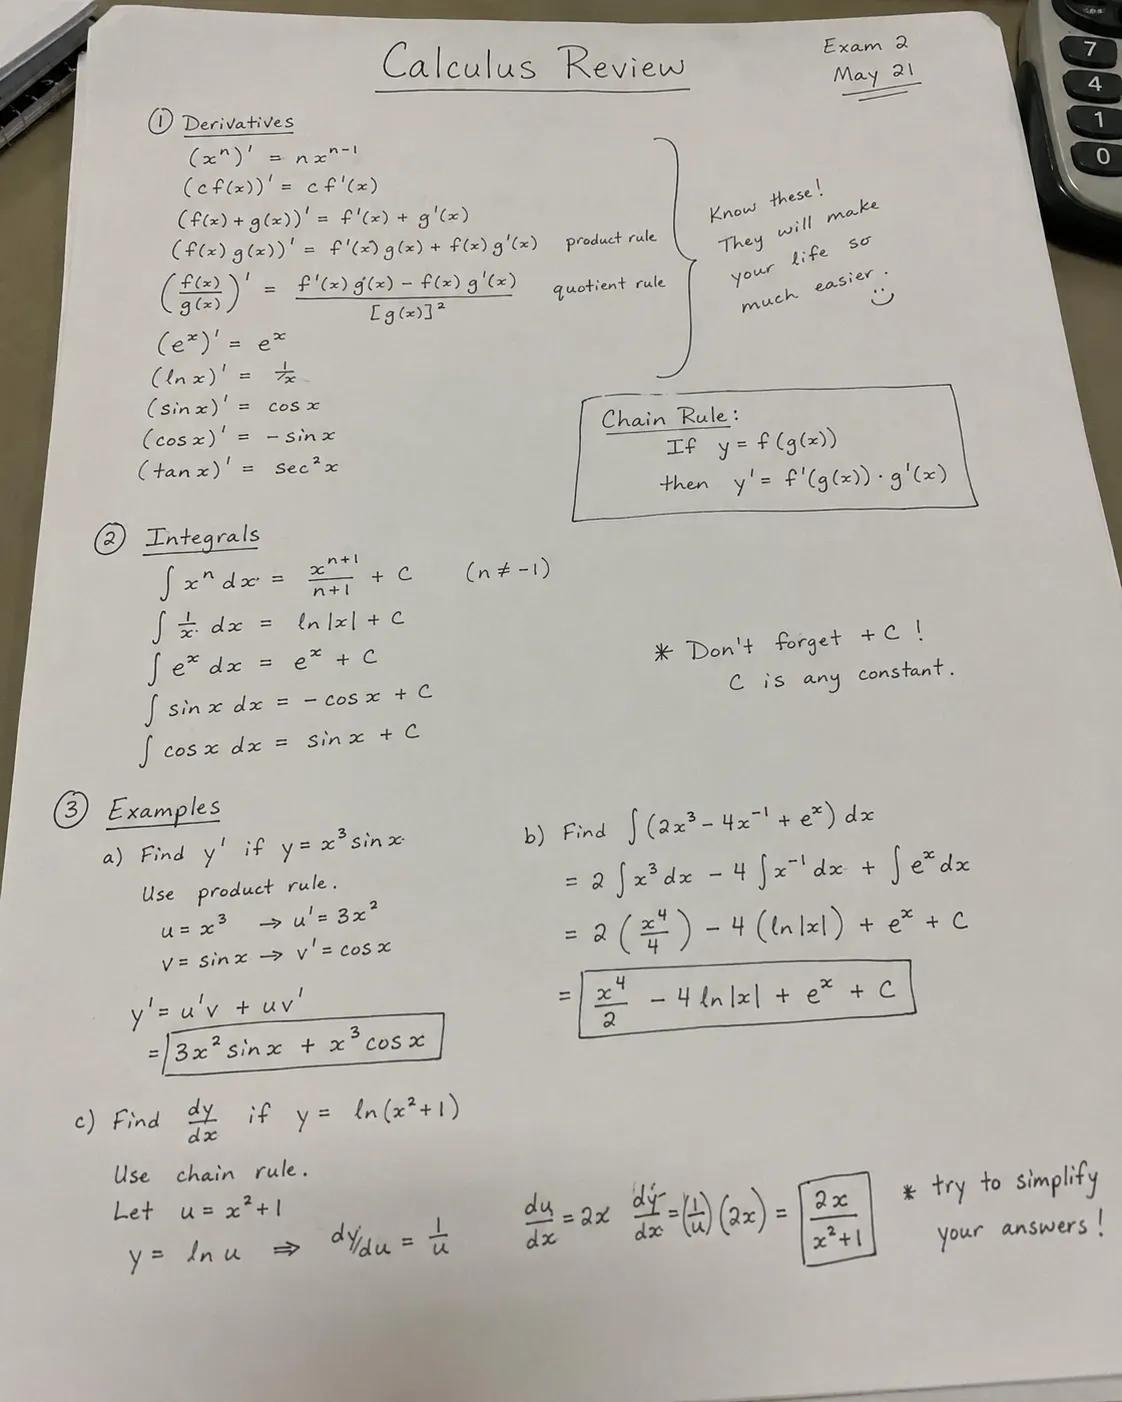 Calculus Review
Exam 2
May 21
① Derivatives
(xⁿ)' = nxⁿ⁻¹
(cf(x))' = cf'(x)
(f(x) + g(x))' = f'(x) + g'(x)
(f(x) g(x))' = f'(x) g(x) + f(x) g'(x) product rule
(f(x)/g(x))' = f'(x) g(x) − f(x) g'(x) / [g(x)]² quotient rule
(eˣ)' = eˣ
(ln x)' = 1/x
(sin x)' = cos x
(cos x)' = − sin x
(tan x)' = sec² x
Know these!
They will make
your life so
much easier. ☺
Chain Rule:
If y = f(g(x))
then y' = f'(g(x)) · g'(x)
② Integrals
∫ xⁿ dx = xⁿ⁺¹/n+1 + C (n ≠ −1)
∫ 1/x dx = ln |x| + C
∫ eˣ dx = eˣ + C
∫ sin x dx = − cos x + C
∫ cos x dx = sin x + C
* Don't forget + C !
C is any constant.
③ Examples
a) Find y' if y = x³ sin x
Use product rule.
u = x³ → u' = 3x²
v = sin x → v' = cos x
y' = u'v + uv'
= 3x² sin x + x³ cos x
b) Find ∫ (2x³ − 4x⁻¹ + eˣ) dx
= 2 ∫ x³ dx − 4 ∫ x⁻¹ dx + ∫ eˣ dx
= 2 (x⁴/4) − 4 (ln |x|) + eˣ + C
= x⁴/2 − 4 ln |x| + eˣ + C
c) Find dy/dx if y = ln(x² + 1)
Use chain rule.
Let u = x² + 1
y = ln u ⇒ dy/du = 1/u
du/dx = 2x dy/dx = (1/u) (2x) = 2x/x²+1
* try to simplify
your answers!
7
4
1
0